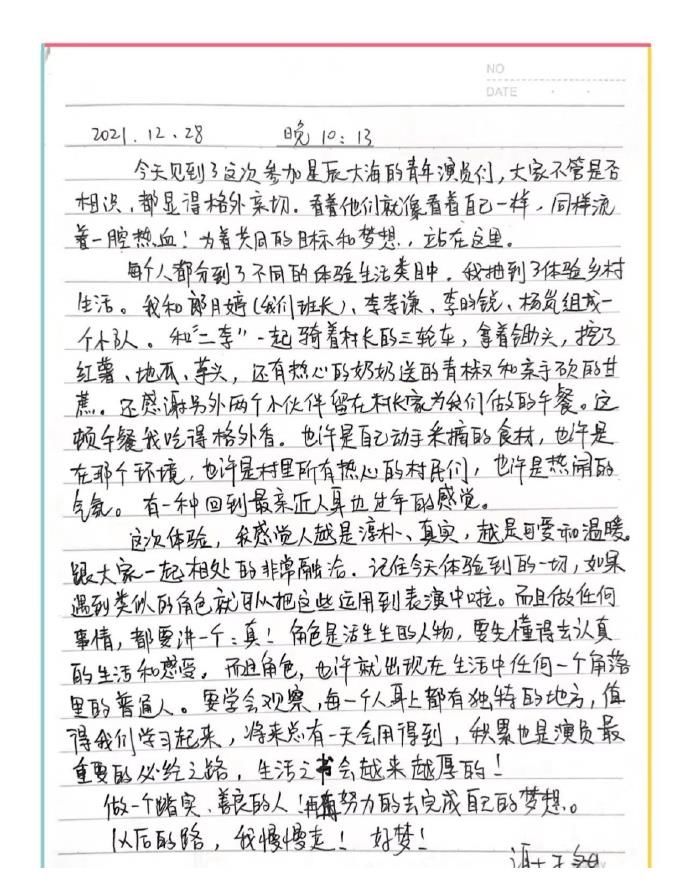 NO
DATE
2021.12.28 晚10:13
今天见到了这次参加星辰大海的青年演员们，大家不管是否
相识，都显得格外亲切。看着他们就像看着自己一样，同样流
着一腔热血！为着共同的目标和梦想，站在这里。
每个人都分到了不同的体验生活类目中，我抽到了体验乡村
生活。我和郎月婷（我们班长）、李孝谦、李昀锐、杨岚组成一
个小队。和“二李”一起骑着村长的三轮车，拿着锄头，挖了
红薯、地瓜、芋头，还有热心的奶奶送的青椒和亲手砍的甘
蔗。还感谢另外两个小伙伴留在村长家为我们做的午餐。这
顿午餐我吃得格外香。也许是自己动手采摘的食材，也许是
在那个环境，也许是村里所有热心的村民们，也许是热闹的
气氛。有一种回到最亲近人身边过年的感觉。
这次体验，我感觉人越是淳朴、真实，越是可爱和温暖。
跟大家一起相处的非常融洽。记住今天体验到的一切，如果
遇到类似的角色就可以把这些运用到表演中啦。而且做任何
事情，都要讲一个：真！角色是活生生的人物，要先懂得去认真
的生活和感受。而且角色，也许就出现在生活中任何一个角落
里的普通人。要学会观察，每一个人身上都有独特的地方，值
得我们学习起来，将来总有一天会用得到，积累也是演员最
重要的必经之路，生活之书会越来越厚的！
做一个踏实、善良的人！再努力的去完成自己的梦想。
以后的路，我慢慢走！好梦！